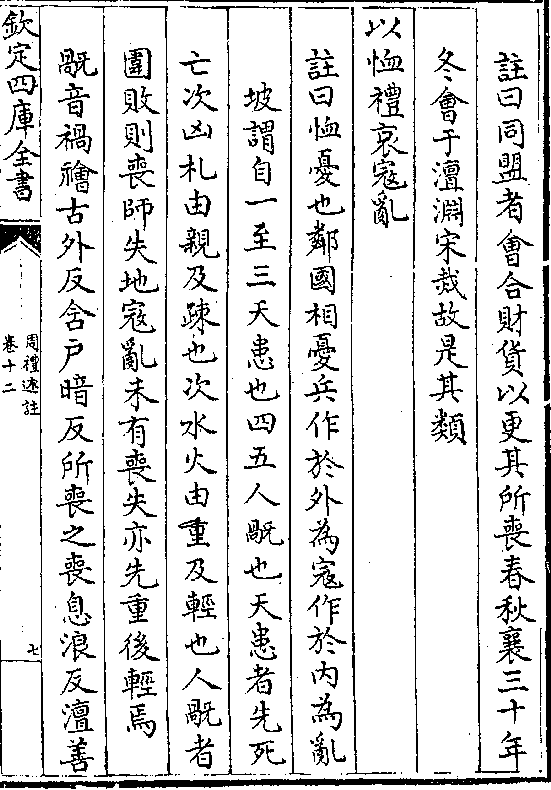 註曰同盟者會合財貨以更其所喪春秋襄三十年
冬會于澶淵宋烖故是其類
以恤禮哀寇亂
註曰恤憂也鄰國相憂兵作於外為寇作於內為亂
坡謂自一至三天患也四五人禍也天患者先死
亡次凶札由親及踈也次水火由重及輕也人禍者
圍敗則喪師失地寇亂未有喪失亦先重後輕焉
禍音禍禬古外反含戶暗反所喪之喪息浪反澶善
欽定四庫全書
周禮述註
卷十二
七